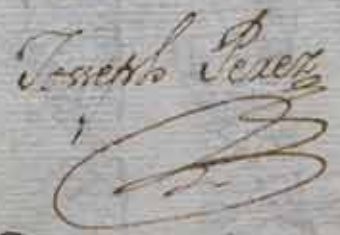 Joseph Perez